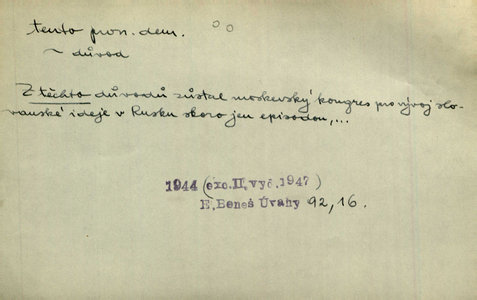 tento pron. dem.
~ důvod
Z těchto důvodů zůstal moskevský kongres pro vývoj slo-
vanské ideje v Rusku skoro jen episodou,...
1944 (exc. II. vyč. 1947)
E. Beneš Úvahy 92, 16.